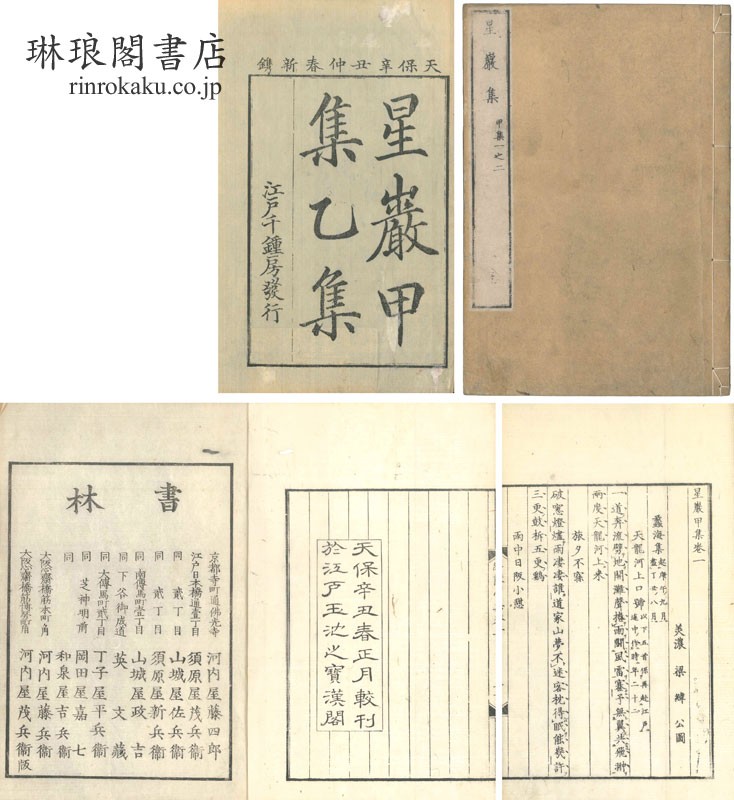 琳琅閣書店
rinrokaku.co.jp
天保辛丑仲春新鐫
星巖甲
集乙集
江戸千鍾房發行
星巖集 甲集一之二
星巖甲集卷一
美濃 梁緯 公圖
天龍河上口號
兩度天龍河上來
旅夕不寐
三更鼓柝五更鷄
雨中日阪小憩
天保辛丑春正月較刊
於江戸玉池之寶漢閣
書林
京都寺町通佛光寺 河内屋藤四郎
江戸日本橋通壹丁目 須原屋茂兵衞
同 貳丁目 山城屋佐兵衞
同 貳丁目 須原屋新兵衞
同 南傳馬町壹丁目 山城屋政吉
同 下谷御成道 英文藏
同 大傳馬町貳丁目 丁子屋平兵衞
同 芝神明前 岡田屋嘉七
同 和泉屋吉兵衞
大阪心齋橋筋本町角 河内屋藤兵衞
大阪心齋橋筋博勞町角 河内屋茂兵衞版